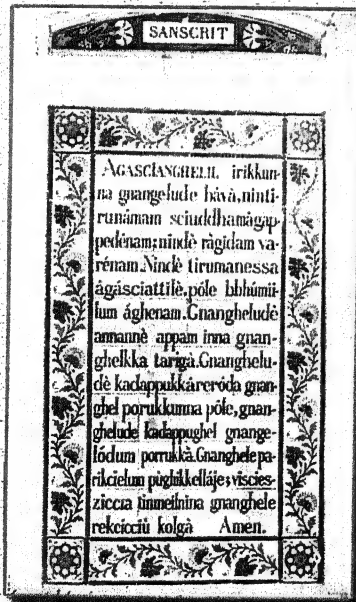 SANSCRIT
AGASCIANGHELIL irikkun-
na gnangelude bàvà, ninti-
runámam sciuddhamàgap
pedénam; nindè ràgidam va-
rénam. Nindè tirumanessa
àgásciattilè, póle bhúmii-
lum ághenam. Gnangheludè
annannè appam inna gnan-
ghelkka tarigà. Gnanghelu-
dè kadappukkáreróda gnan-
ghel porukkunna póle, gnan-
ghelude kadappughel gnange-
lódum porrukkà. Gnanghele pa-
rikcielum pùghikkelláje; viscies-
ziccia tinmeilnina gnanghele
rekcicciú kolgà Amen.